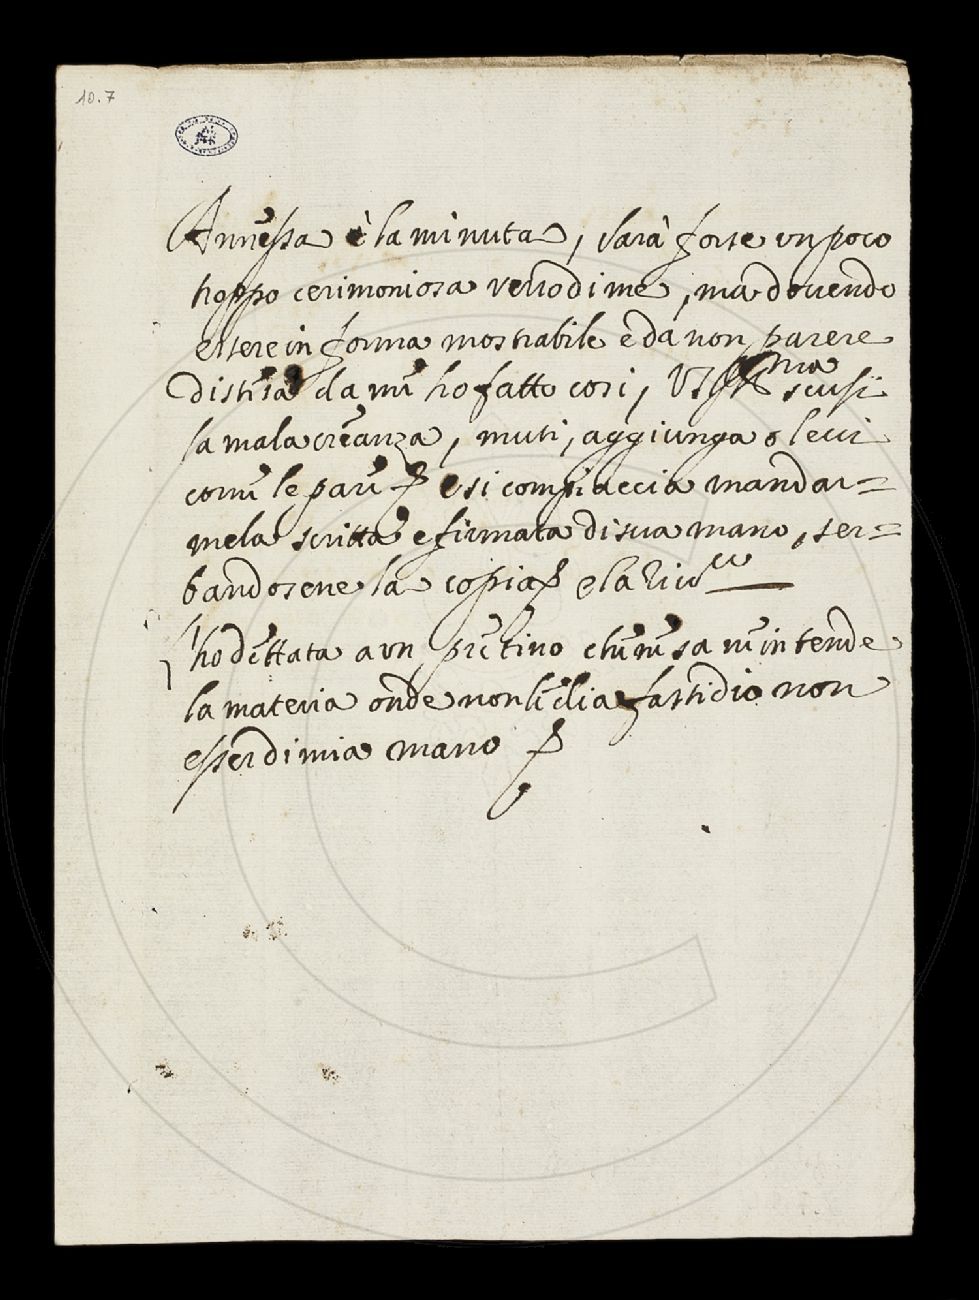 10.7
Annessa è la minuta, sarà forse un poco
troppo cerimoniosa verso di me, ma dovendo
essere in forma mostrabile e da non parere
distesa da me ho fatto cosi, VS Ill.ma scusi
la mala creanza, muti, aggiunga o levi
come le pare e si compiaccia mandar=
mela scritta e firmata di sua mano, ser=
bandosene la copia e la
ho dettata a un pretino che non sa ne intende
la materia onde non li dia fastidio non
esser di mia mano